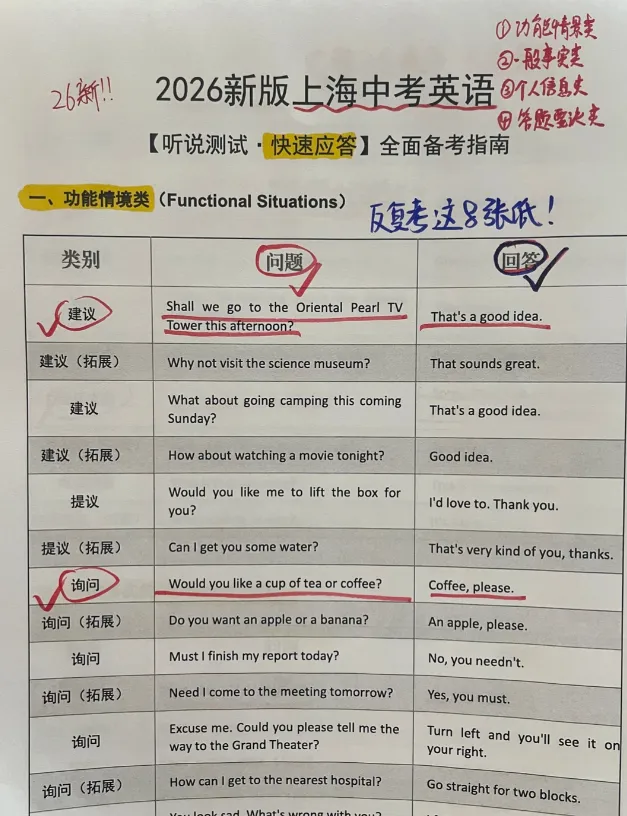 ①功能情景类
②一般事实类
③个人信息类
④答题要决类
26新!!
2026新版上海中考英语
【听说测试·快速应答】全面备考指南
一、功能情境类（Functional Situations）
反复考这8张纸!
类别 问题 回答
建议 Shall we go to the Oriental Pearl TV
Tower this afternoon? That's a good idea.
建议（拓展） Why not visit the science museum? That sounds great.
建议 What about going camping this coming
Sunday? That's a good idea.
建议（拓展） How about watching a movie tonight? Good idea.
提议 Would you like me to lift the box for
you? I'd love to. Thank you.
提议（拓展） Can I get you some water? That's very kind of you, thanks.
询问 Would you like a cup of tea or coffee? Coffee, please.
询问（拓展） Do you want an apple or a banana? An apple, please.
询问 Must I finish my report today? No, you needn't.
询问（拓展） Need I come to the meeting tomorrow? Yes, you must.
询问 Excuse me. Could you please tell me the
way to the Grand Theater? Turn left and you'll see it on
your right.
询问（拓展） How can I get to the nearest hospital? Go straight for two blocks.
You look sad. What's wrong with you?